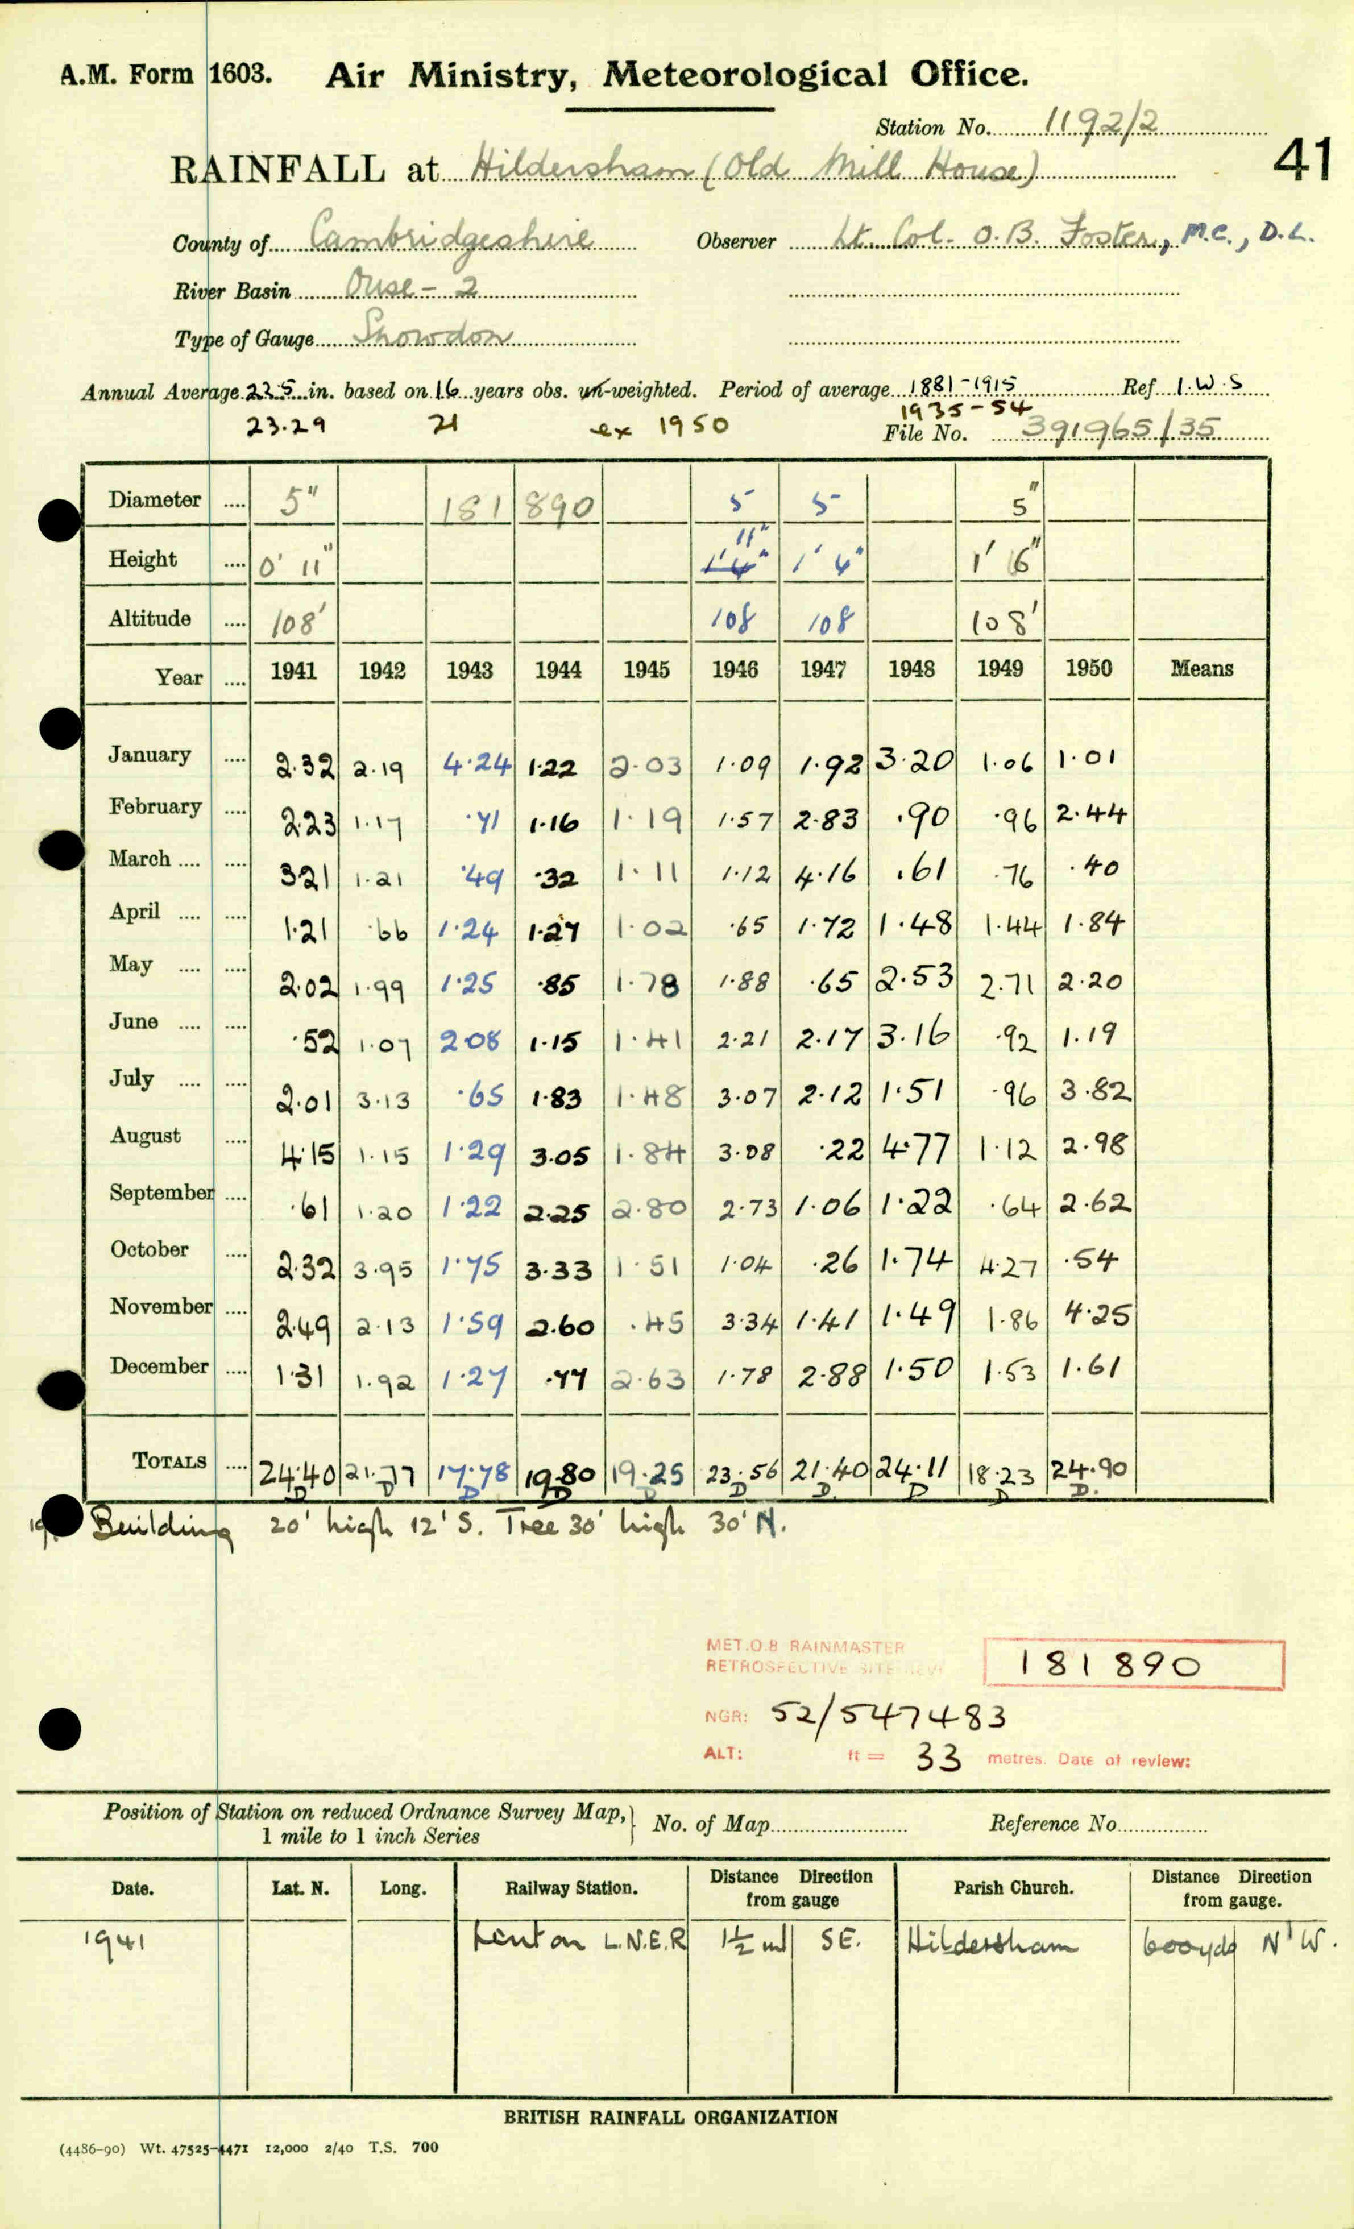 A.M. Form 1603. Air Ministry, Meteorological Office.
Station No. 1192/2
41
RAINFALL at Hildersham (Old Mill House)
County of Cambridgeshire Observer Lt. Col. O.B. Foster, M.C., D.L.
River Basin Ouse - 2
Type of Gauge Snowdon
Annual Average 22.5 in. based on 16 years obs. un-weighted. Period of average 1881-1915 Ref I.W.S
23.29 21 ex 1950 1935-54
File No. 391965/35
Diameter .... 5" 181 890 5 5 5"
Height .... 0' 11" 1'4" 11" 1' 4" 1' 6"
Altitude .... 108' 108 108 108'
Year .... 1941 1942 1943 1944 1945 1946 1947 1948 1949 1950 Means
January .... 2.32 2.19 4.24 1.22 2.03 1.09 1.92 3.20 1.06 1.01
February .... 2.23 1.17 .71 1.16 1.19 1.57 2.83 .90 .96 2.44
March .... .... 3.21 1.21 .49 .32 1.11 1.12 4.16 .61 .76 .40
April .... .... 1.21 .66 1.24 1.27 1.02 .65 1.72 1.48 1.44 1.84
May .... .... 2.02 1.99 1.25 .85 1.78 1.88 .65 2.53 2.71 2.20
June .... .... .52 1.07 2.08 1.15 1.41 2.21 2.17 3.16 .92 1.19
July .... .... 2.01 3.13 .65 1.83 1.48 3.07 2.12 1.51 .96 3.82
August .... 4.15 1.15 1.29 3.05 1.84 3.08 .22 4.77 1.12 2.98
September .... .61 1.20 1.22 2.25 2.80 2.73 1.06 1.22 .64 2.62
October .... 2.32 3.95 1.75 3.33 1.51 1.04 .26 1.74 4.27 .54
November .... 2.49 2.13 1.59 2.60 .45 3.34 1.41 1.49 1.86 4.25
December .... 1.31 1.92 1.27 .77 2.63 1.78 2.88 1.50 1.53 1.61
TOTALS .... 24.40 21.77 17.78 19.80 19.25 23.56 21.40 24.11 18.23 24.90
D D D D D D D. D D D.
Building 20' high 12' S. Tree 30' high 30' N.
MET.O.8 RAINMASTER
RETROSPECTIVE SITE REVIEW 181890
NGR: 52/547483
ALT: ft = 33 metres. Date of review:
Position of Station on reduced Ordnance Survey Map, No. of Map Reference No.
1 mile to 1 inch Series
Date. Lat. N. Long. Railway Station. Distance Direction from gauge Parish Church. Distance Direction from gauge.
1941 L.N.E.R 1½ ml SE. Hildersham 600yds N'W.
BRITISH RAINFALL ORGANIZATION
(4486-90) Wt. 47525-4471 12,000 2/40 T.S. 700